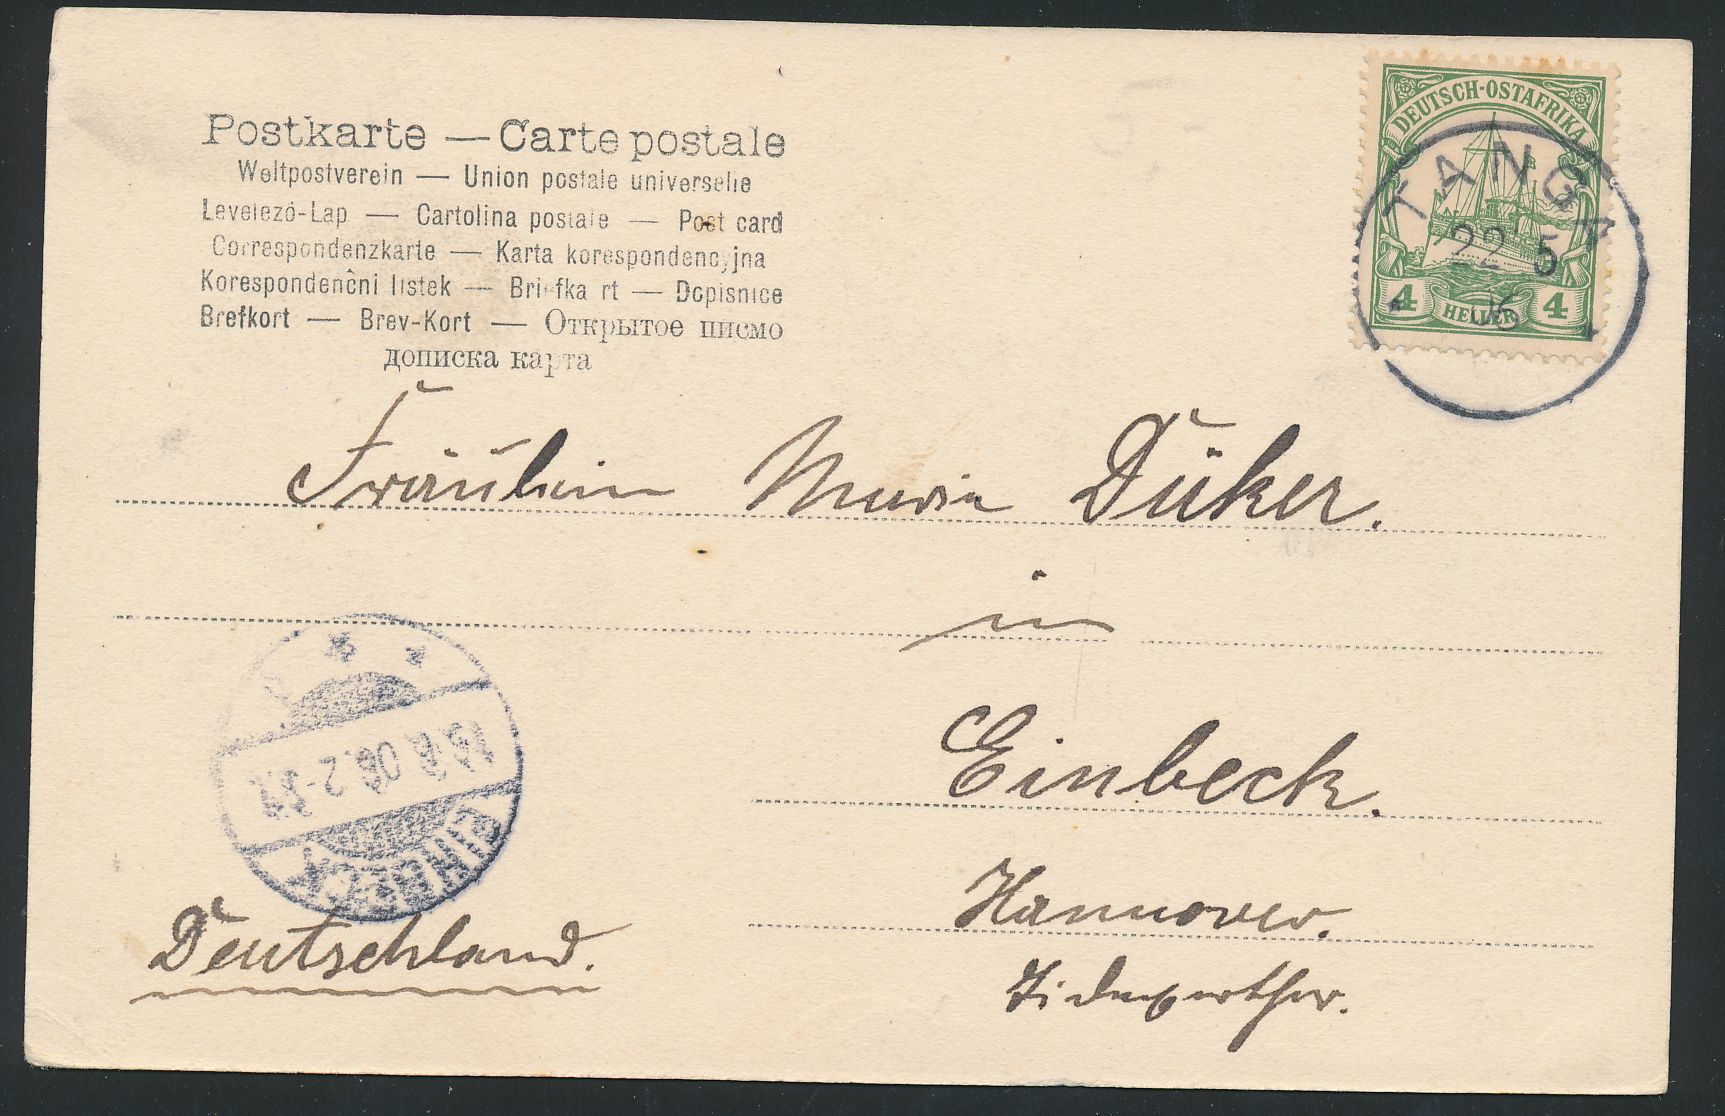 Postkarte — Carte postale
Weltpostverein — Union postale universelle
Levelezö-Lap — Cartolina postale — Post card
Correspondenzkarte — Karta korespondencyjna
Korespondenční lístek — Briefkaart — Dopisnice
Brefkort — Brev-Kort — Открытое писмо
дописка карта
DEUTSCH-OSTAFRIKA
4 HELLER 4
TANGA
22 5
Fräulein Marie Düker.
in
Einbeck.
Hannover.
Deutschland.
EINBECK